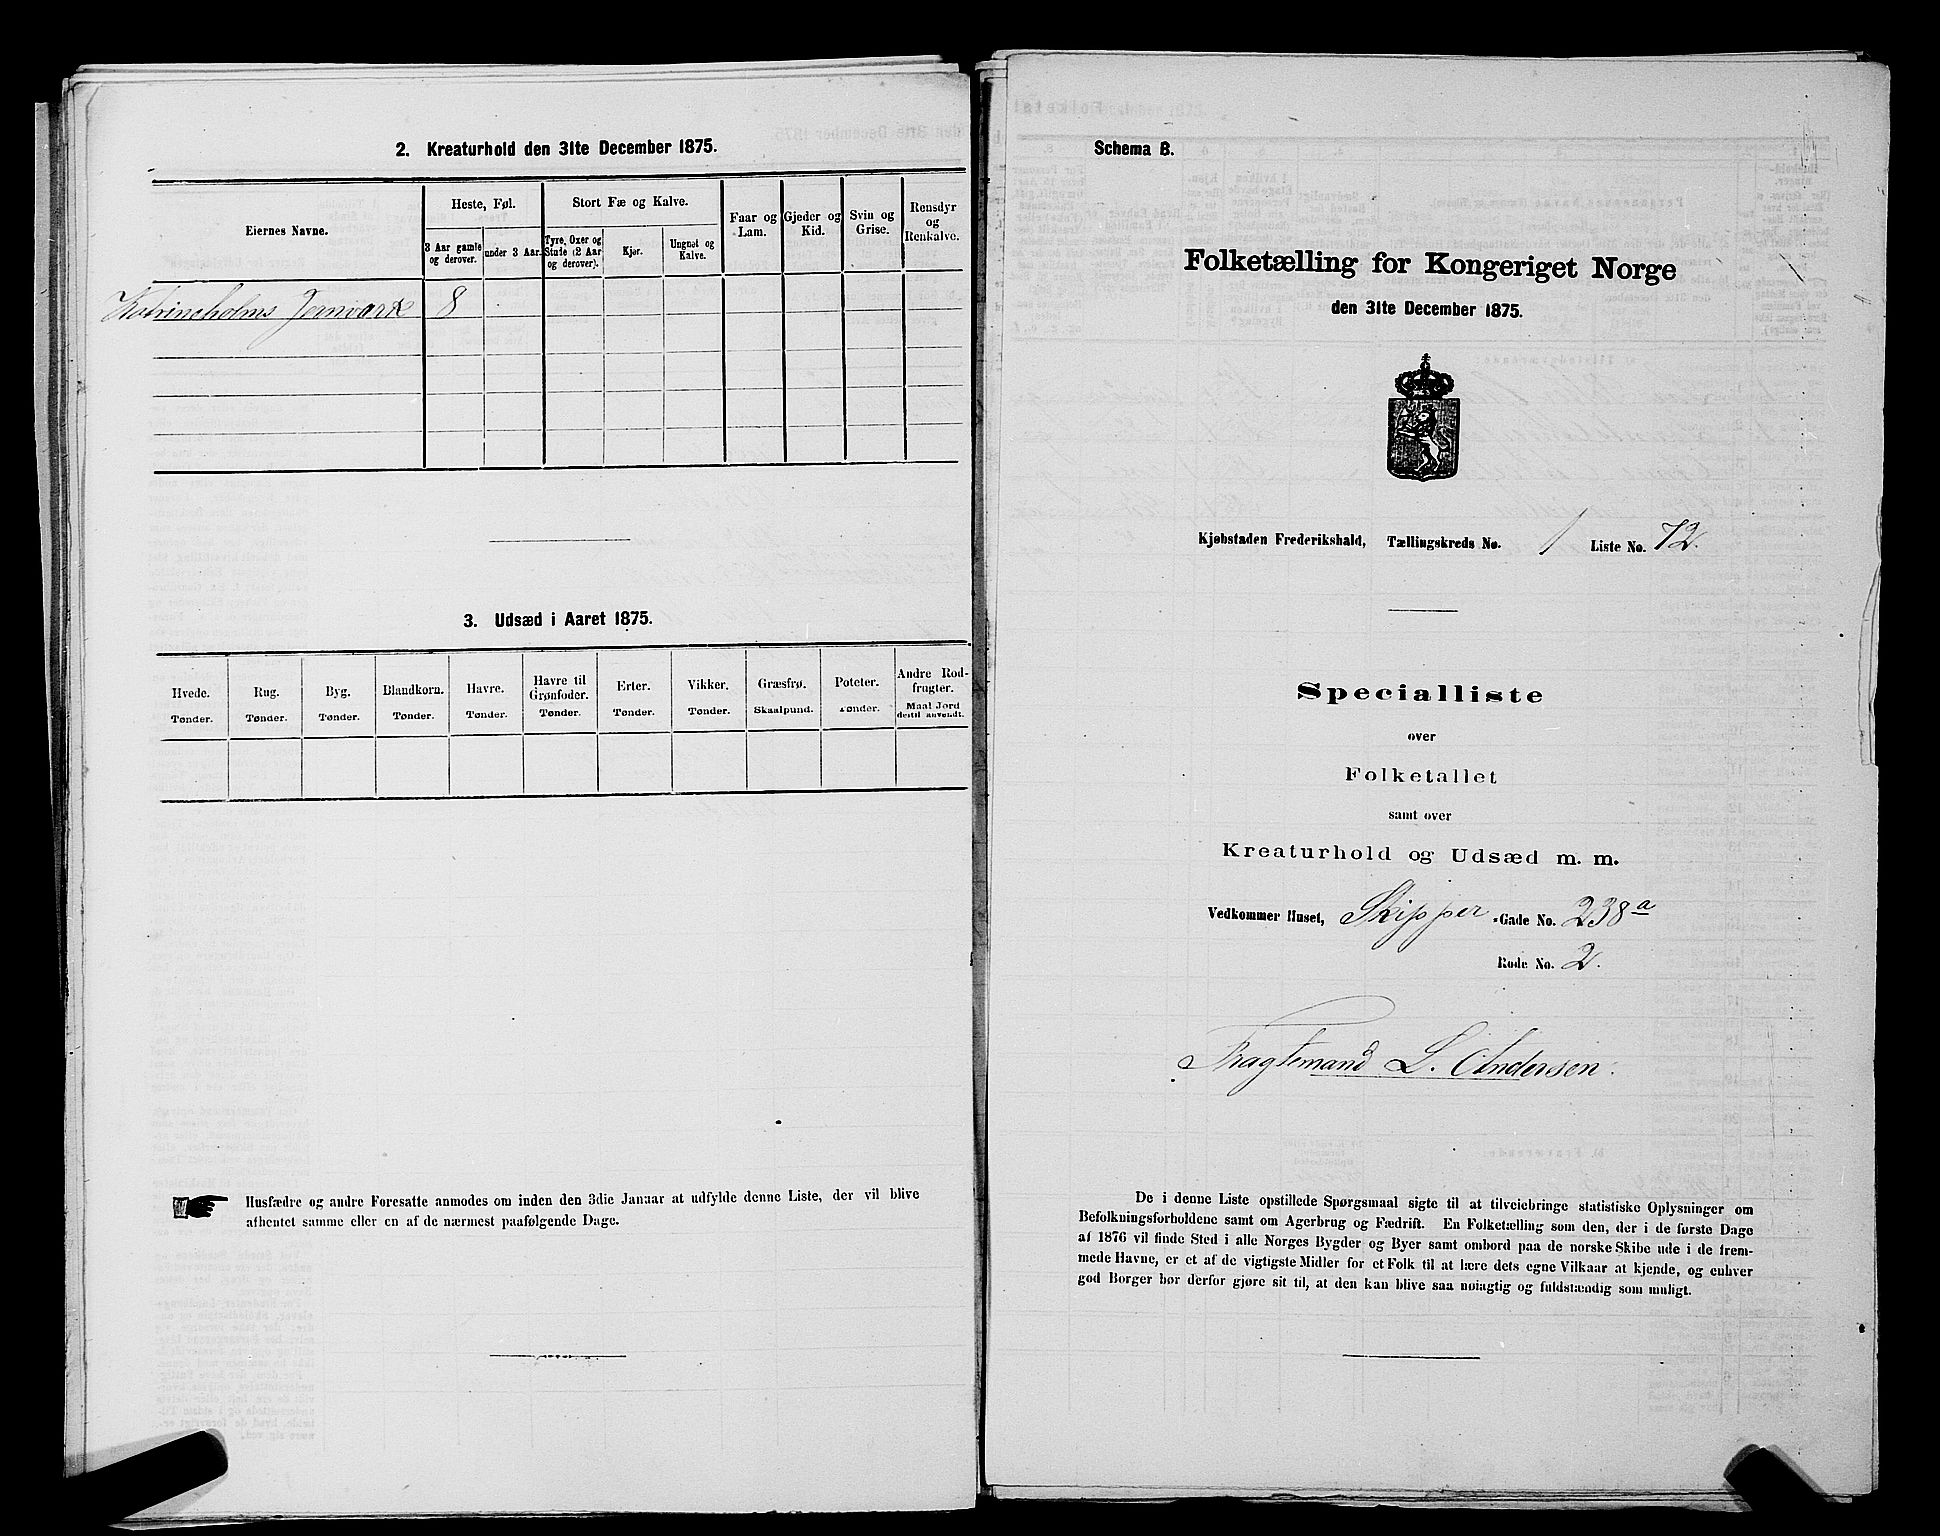 2. Kreaturhold den 31te December 1875.
Eiernes Navne.
Heste, Føl.
Stort Fæ og Kalve.
Faar og Lam.
Gjeder og Kid.
Svin og Grise.
Rensdyr og Renkalve.
3 Aar gamle og derover.
under 3 Aar.
Tyre, Oxer og Stude (2 Aar og derover).
Kjør.
Ungnøt og Kalve.
Katrineholms Jernværk 8
3. Udsæd i Aaret 1875.
Hvede. Rug. Byg. Blandkorn. Havre. Havre til Grønfoder. Erter. Vikker. Græsfrø. Poteter. Andre Rodfrugter.
Tønder. Tønder. Tønder. Tønder. Tønder. Tønder. Tønder. Tønder. Skaalpund. Tønder. Maal Jord dertil anvendt.
Husfædre og andre Foresatte anmodes om inden den 3die Januar at udfylde denne Liste, der vil blive
afhentet samme eller en af de nærmest paafølgende Dage.
Schema B.
Folketælling for Kongeriget Norge
den 31te December 1875.
Kjøbstaden Frederikshald, Tællingskreds No. 1 Liste No. 72.
Specialliste
over
Folketallet
samt over
Kreaturhold og Udsæd m. m.
Vedkommer Huset, Skipper-Gade No. 238a
Rode No. 2.
Fragtemand L. Andersen.
De i denne Liste opstillede Spørgsmaal sigte til at tilveiebringe statistiske Oplysninger om
Befolkningsforholdene samt om Agerbrug og Fædrift. En Folketælling som den, der i de første Dage
af 1876 vil finde Sted i alle Norges Bygder og Byer samt ombord paa de norske Skibe ude i de frem-
mede Havne, er et af de vigtigste Midler for et Folk til at lære dets egne Vilkaar at kjende, og enhver
god Borger bør derfor gjøre sit til, at den kan blive saa nøiagtig og fuldstændig som muligt.